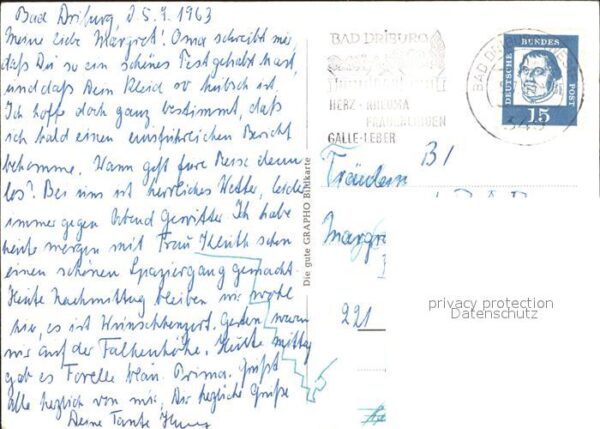 Bad Driburg, d 5.9.1963
Meine liebe Margret! Oma schreibt mir,
daß Du so ein schönes Fest gehabt hast,
und daß Dein Kleid so hübsch ist.
Ich hoffe doch ganz bestimmt, daß
ich bald einen ausführlichen Bericht
bekomme. Wann geht Eure Reise denn
los? Bei uns ist herrliches Wetter, leider
immer gegen Abend Gewitter. Ich habe
heute morgen mit Frau schon
einen schönen Spaziergang gemacht.
Heute Nachmittag bleiben wir wohl
hier, es ist Wunschkonzert. Gestern waren
wir auf der Falkenhöhe. Heute Mittag
gab es Forelle blau. Prima. Grüßt
alle herzlich von mir, Dir herzliche Grüße
Deine Tante
Die gute GRAPHO Bildkarte
BAD DRIBURG
HERZ · RHEUMA
FRAUENLEIDEN
GALLE-LEBER
BAD DRIBURG
DEUTSCHE BUNDES POST
15
B1
Fräulein
Margret
221
privacy protection
Datenschutz